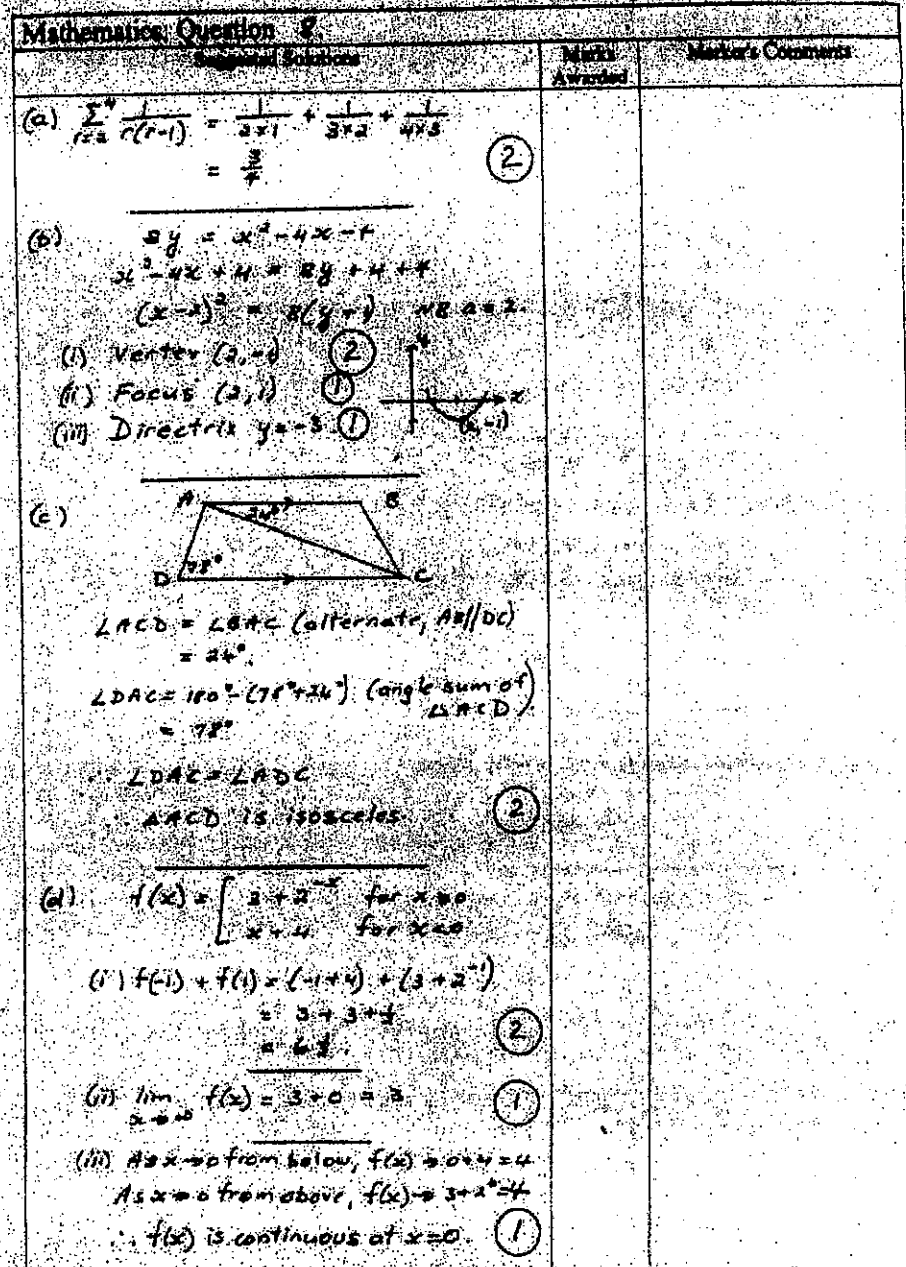 Mathematics: Question 8
Suggested Solutions
Marks Awarded
Marker's Comments
(a) Σ⁴ᵣ₌₂ 1/r(r-1) = 1/2×1 + 1/3×2 + 1/4×3
=
②
(b) 8y = x² - 4x - 4
x² - 4x + 4 = 8y + 4 + 4
(x-2)² = 8(y+1) NB a = 2.
(i) Vertex (2,-1) ②
(ii) Focus (2,1) ①
(iii) Directrix y=-3 ①
y
x
(2,-1)
(c)
A B
24°
78°
D C
∠ACD = ∠BAC (alternate, AB//DC)
= 24°.
∠DAC = 180° - (78°+24°) (angle sum of ΔACD).
= 78°
∴ ∠DAC = ∠ADC
∴ ΔACD is isosceles. ②
(d) f(x) = [ 3 + 2⁻ˣ for x
x + 4 for x
(i) f(-1) + f(1) = (-1+4) + (3 + 2⁻¹)
= 3 + 3 + ½
= 6½. ②
(ii) lim x→∞ f(x) = 3+0 = 3 ①
(iii) As x→0 from below, f(x) → 0+4=4
As x→0 from above, f(x) → 3+2⁰=4
∴ f(x) is continuous at x=0. ①